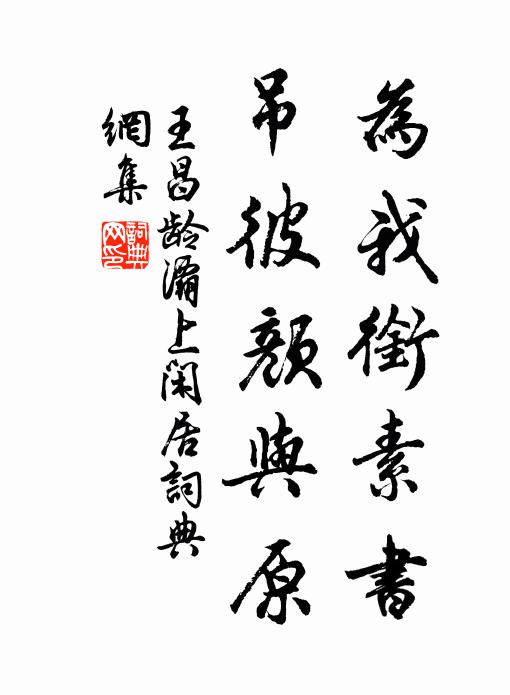 為我銜素書
吊彼顏與原
王昌龄灞上閑居詞典
網集
詞典
网印